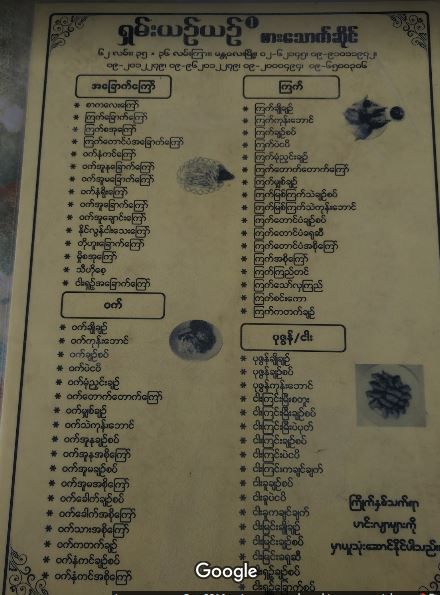 ရှမ်းယဉ်ယဉ် ၊ စားသောက်ဆိုင်
၆၂ လမ်း၊ ၃၅ × ၃၆ လမ်းကြား၊ မန္တလေးမြို့
အခြောက်ကြော်
စာကလေးကြော်
ကြက်ခြောက်ကြော်
ကြက်စအူကြော်
ကြက်တောင်ပံအခြောက်ကြော်
ဝက်နံကင်ကြော်
ဝက်အူနုခြောက်ကြော်
ဝက်အူမခြောက်ကြော်
ဝက်နံရိုးကြော်
ဝက်အူခြောက်ကြော်
ဝက်အူချောင်းကြော်
နိုင်လွန်ငါးသေးကြော်
တိုဟူးခြောက်ကြော်
မှိုစအူကြော်
သီဟိုစေ့
ငါးရှဉ့်အခြောက်ကြော်
ဝက်
ဝက်ချိုချဉ်
ဝက်ကုန်းဘောင်
ဝက်ချဉ်စပ်
ဝက်ပဲငပိ
ဝက်မုံညှင်းချဉ်
ဝက်တောက်တောက်ကြော်
ဝက်မျှစ်ချဉ်
ဝက်သဲကုန်းဘောင်
ဝက်အူနုချဉ်စပ်
ဝက်အူနုအစိုကြော်
ဝက်အူမချဉ်စပ်
ဝက်အူမအစိုကြော်
ဝက်ခေါက်ချဉ်စပ်
ဝက်ခေါက်အစိုကြော်
ဝက်သားအစိုကြော်
ဝက်ကတက်ချဉ်
ဝက်နံကင်ချဉ်စပ်
ဝက်နံကင်အစိုကြော်
ကြက်
ကြက်ချိုချဉ်
ကြက်ကုန်းဘောင်
ကြက်ချဉ်စပ်
ကြက်ပဲငပိ
ကြက်မုံညှင်းချဉ်
ကြက်တောက်တောက်ကြော်
ကြက်မျှစ်ချဉ်
ကြက်မြစ်ကြက်သဲချဉ်စပ်
ကြက်မြစ်ကြက်သဲကုန်းဘောင်
ကြက်တောင်ပံချဉ်စပ်
ကြက်တောင်ပံခရုဆီ
ကြက်တောင်ပံအစိုကြော်
ကြက်အစိုကြော်
ကြက်ကြည်တင်
ကြက်သော်လှကြည်
ကြက်စင်းကော
ကြက်ကတက်ချဉ်
ပုဇွန်/ငါး
ပုဇွန်ချိုချဉ်
ပုဇွန်ချဉ်စပ်
ပုဇွန်ကုန်းဘောင်
ငါးကြင်းပြီးစတူး
ငါးကြင်းပြီးချဉ်စပ်
ငါးကြင်းပြီးပဲပုတ်
ငါးကြင်းချဉ်စပ်
ငါးကြင်းပဲငပိ
ငါးကြင်းကချင်ချက်
ငါးခူချဉ်စပ်
ငါးခူပဲငပိ
ငါးခူကချင်ချက်
ငါးမြင်းချိုချဉ်
ငါးမြင်းချဉ်စပ်
ငါးမြင်းခရုဆီ
ငါးရှဉ့်ချဉ်စပ်
ကြိုက်နှစ်သက်ရာ
ဟင်းလျာများကို
မှာယူသုံးဆောင်နိုင်ပါသည်။
Google